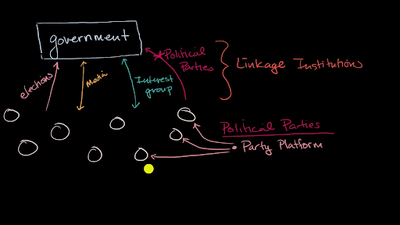 government
Political
Parties
Linkage Institutions
elections
Media
Interest
group
Political Parties
• Party Platform